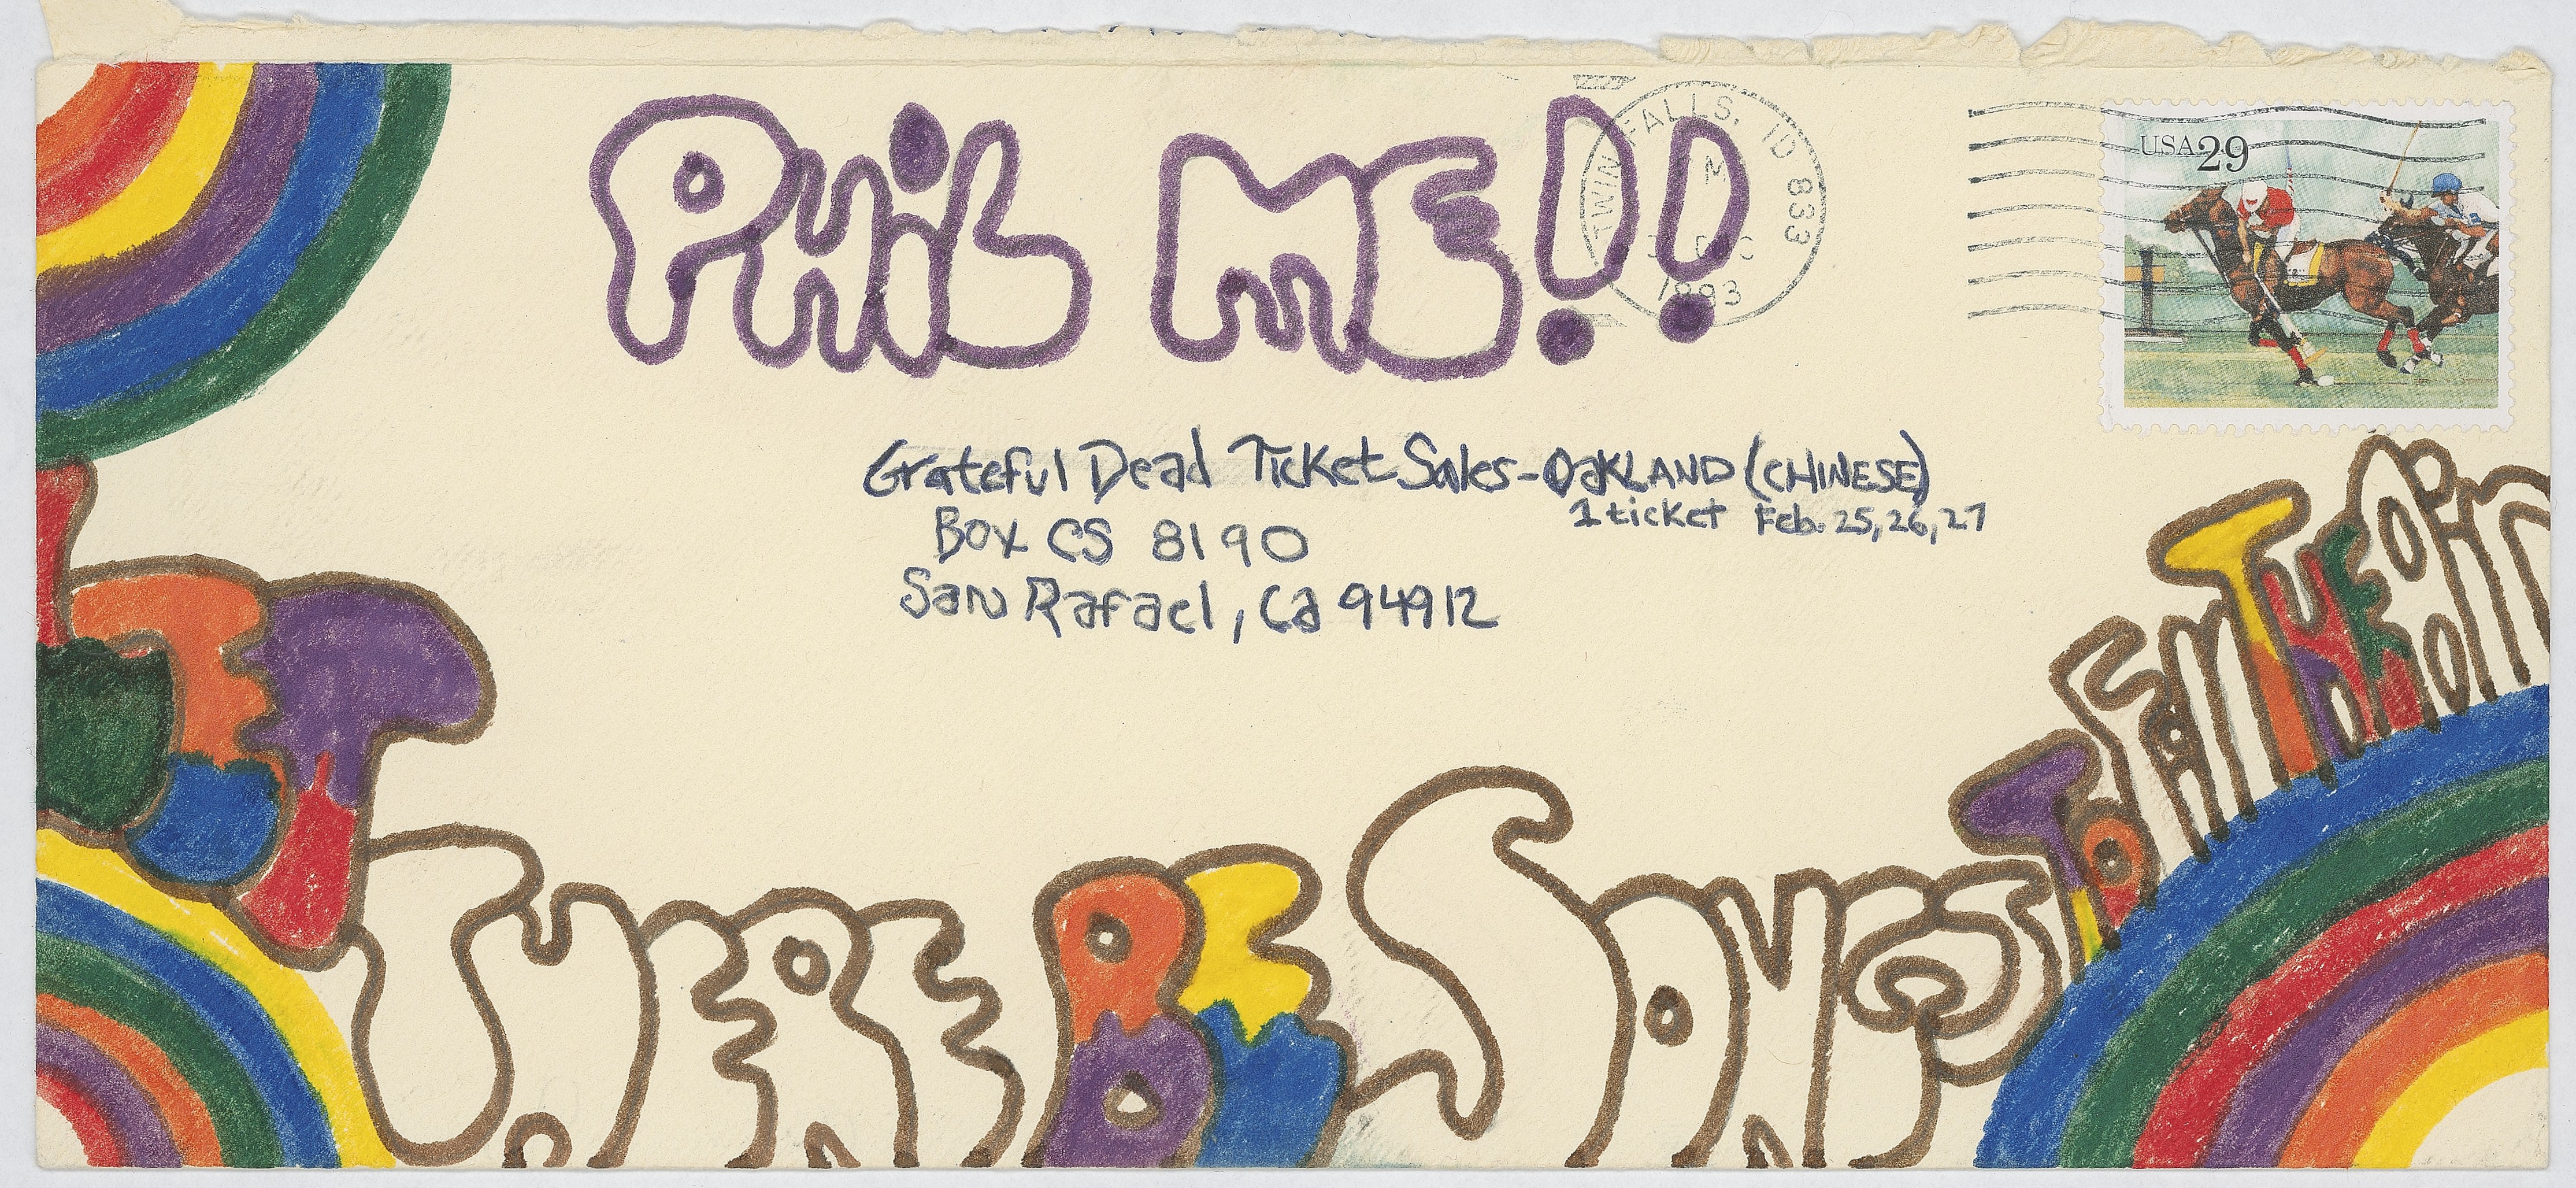 PHiL ME!!
TWIN FALLS, ID 833
1993
USA 29
Grateful Dead Ticket Sales-OaKLAND (CHINESE)
1 ticket Feb. 25, 26, 27
Box CS 8190
San Rafael, Ca 94912
LET THERE BE SONGS TO Fill THE